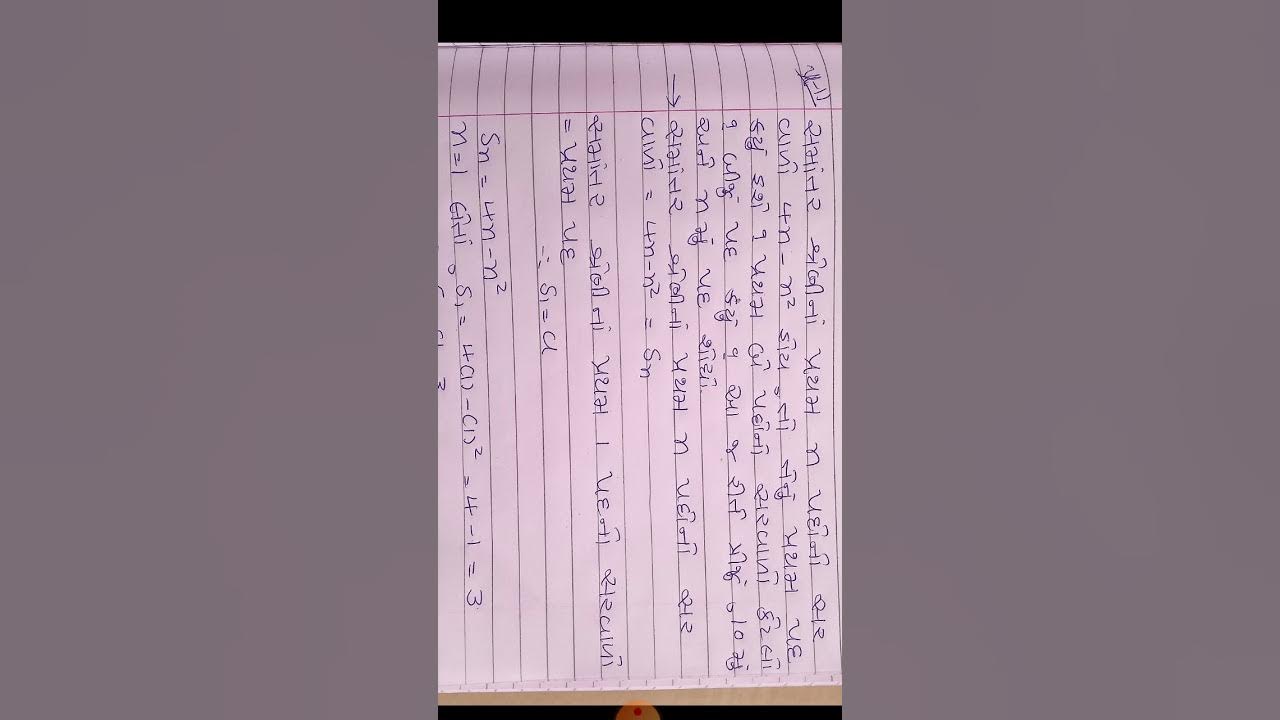 પ્ર-11 સમાંતર શ્રેણીનાં પ્રથમ n પદોનો સર
વાળો 4n - n² હોય, તો તેનું પ્રથમ પદ
કયું હશે ? પ્રથમ બે પદોનો સરવાળો કેટલો
? બીજું પદ કયું ? આ જ રીતે ત્રીજું ૧૦ મું
અને n મું પદ શોધો.
→ સમાંતર શ્રેણીનાં પ્રથમ n પદોનો સર
વાળો = 4n-n² = Sn
સમાંતર શ્રેણીનાં પ્રથમ 1 પદનો સરવાળો
= પ્રથમ પદ
∴ S₁ = a
Sn = 4n-n²
n=1 લેતાં, S₁ = 4(1) - (1)² = 4-1 = 3